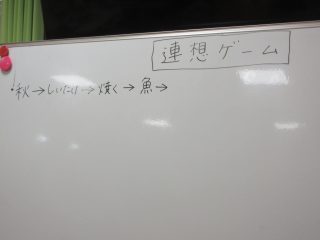 連想ゲーム
秋→しいたけ→焼く→魚→